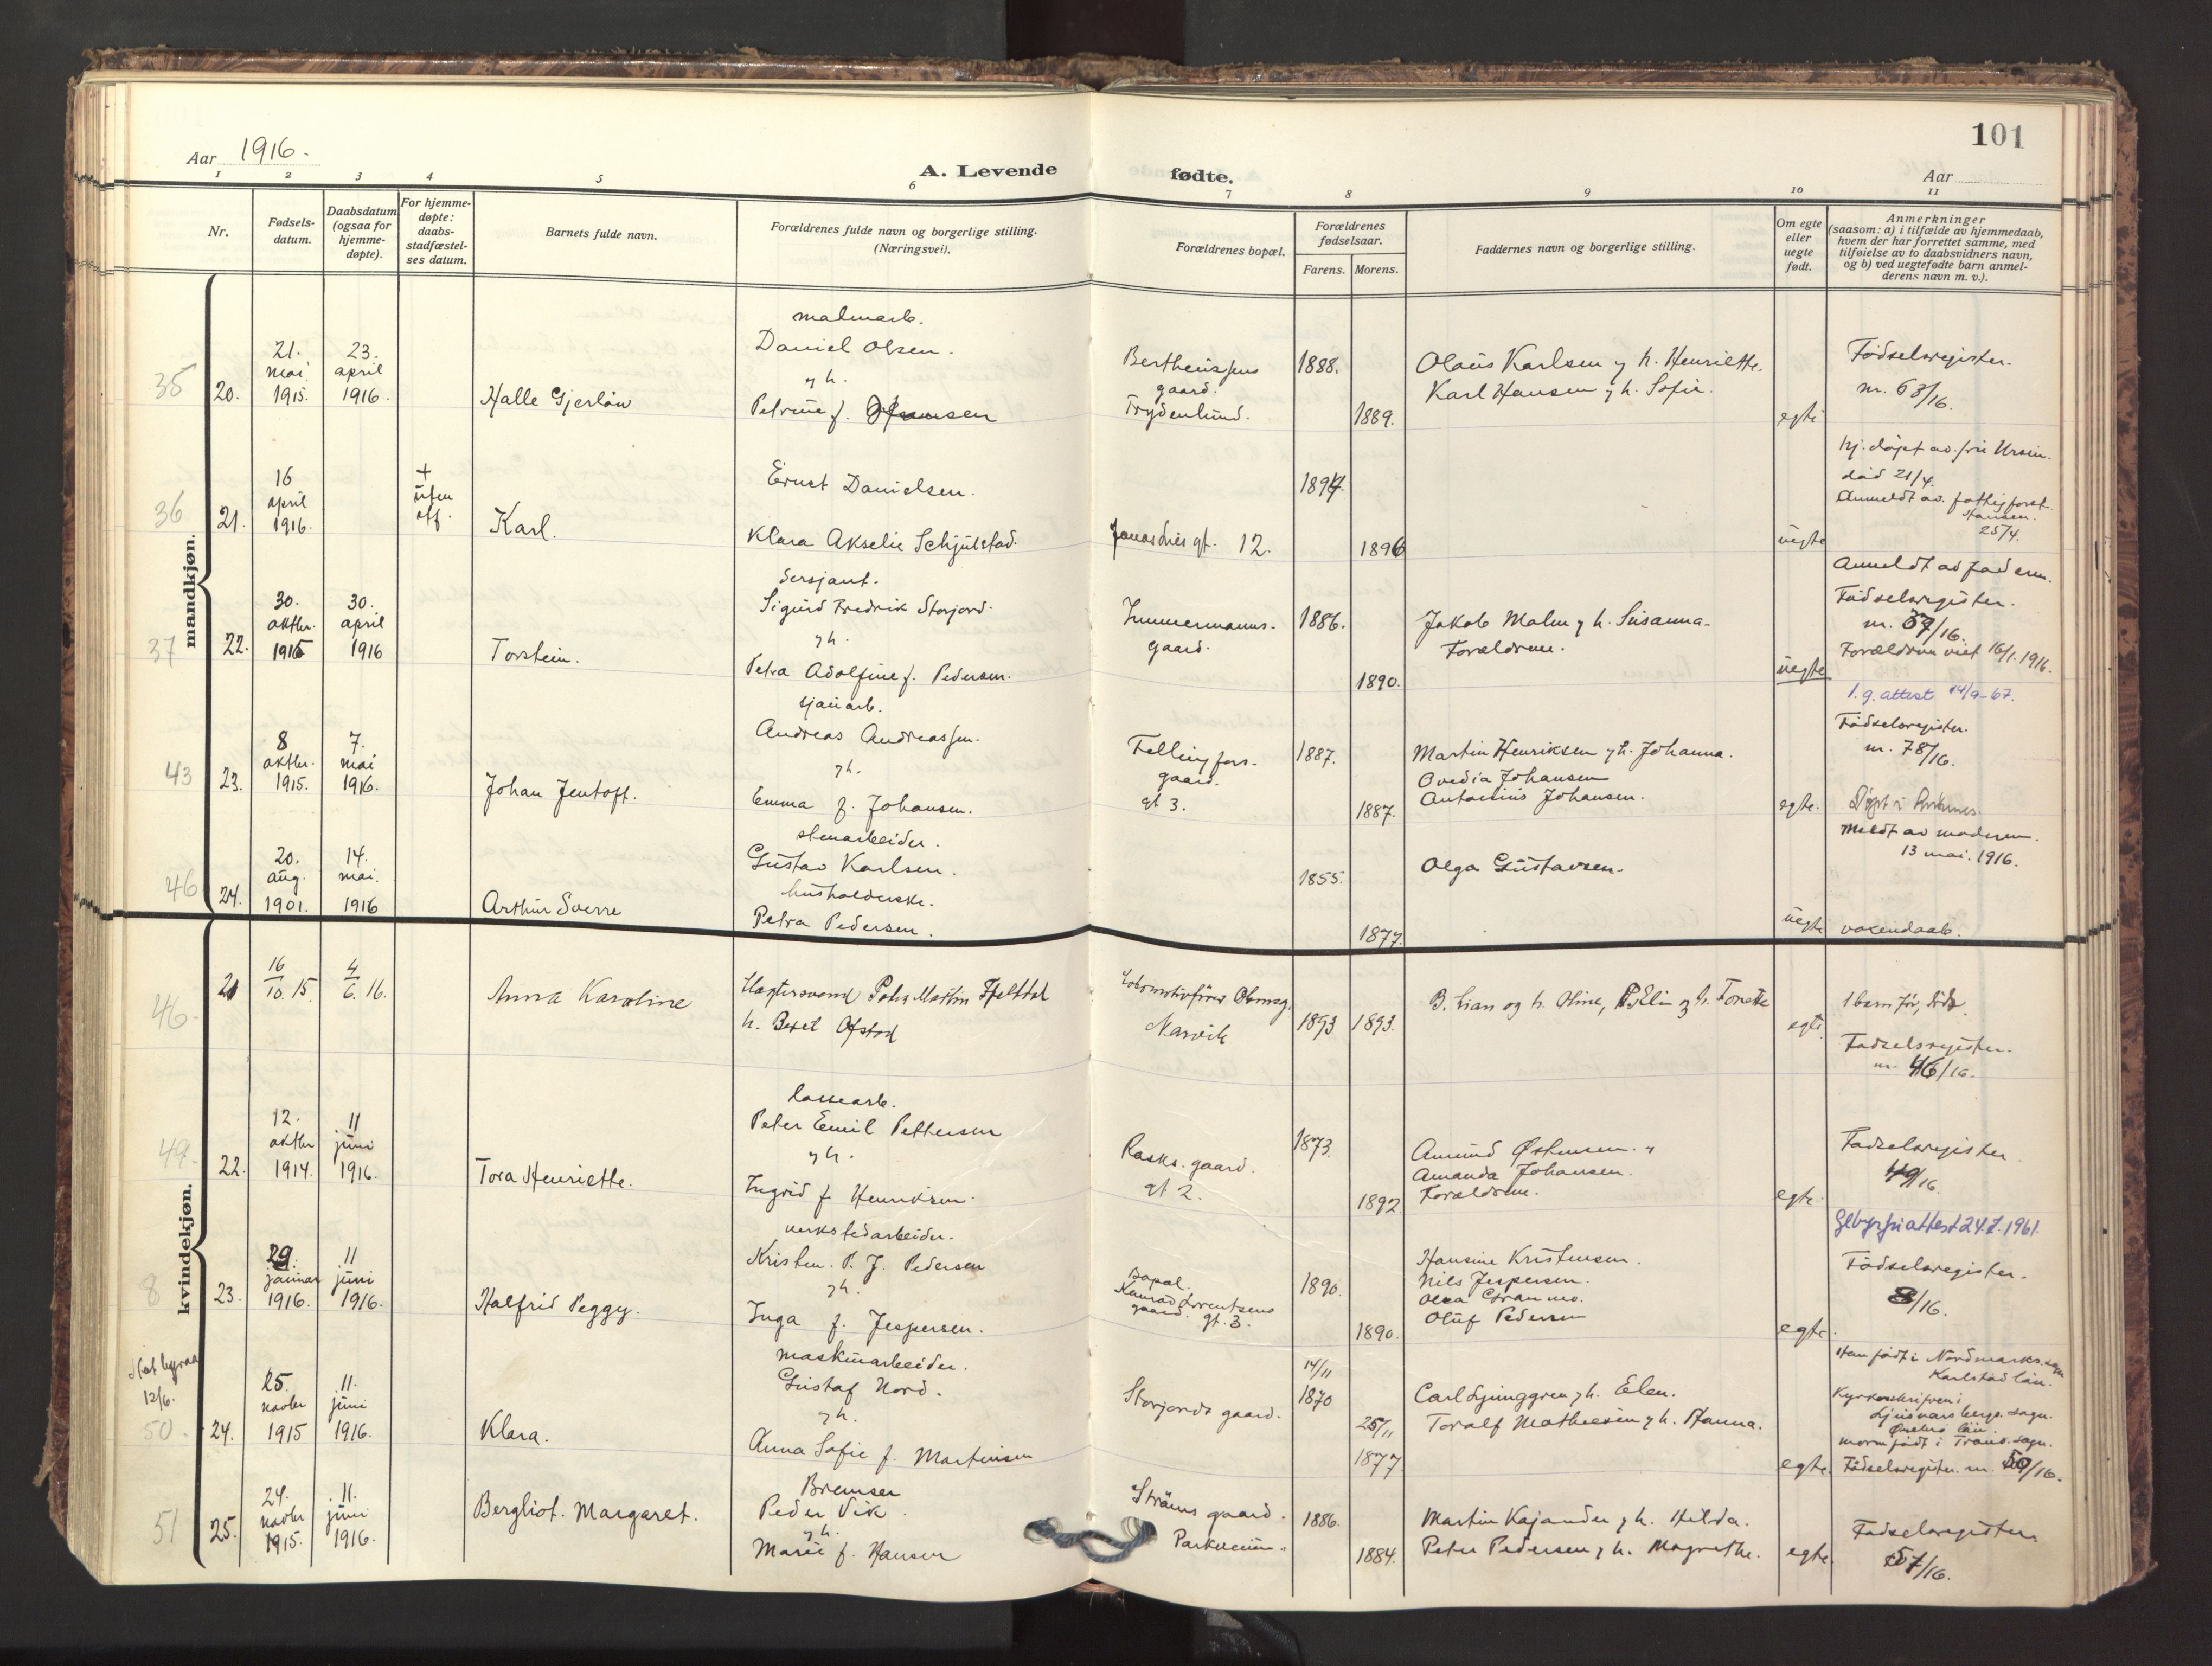 101
Aar 1916.
A. Levende fødte.
Aar
1 2 3 4 5 6 7 8 9 10 11
Nr.
Fødsels-
datum.
Daabsdatum
(ogsaa for
hjemme-
døpte).
For hjemme-
døpte:
daabs-
stadfæstel-
ses datum.
Barnets fulde navn.
Forældrenes fulde navn og borgerlige stilling.
(Næringsvei).
Forældrenes bopæl.
Forældrenes
fødselsaar.
Farens. Morens.
Faddernes navn og borgerlige stilling.
Om egte
eller
uegte
født.
Anmerkninger
(saasom: a) i tilfælde av hjemmedaab,
hvem der har forrettet samme, med
tilføielse av to daabsvidners navn,
og b) ved uegtefødte barn anmel-
derens navn m. v.).
mandkjøn.
35
20.
21.
mai
1915.
23.
april
1916.
Halle Gjerløw
malmarb.
Daniel Olsen.
g h.
Petrine f. Hansen
Bertheussens
gaard.
Frydenlund.
1888.
1889.
Olaus Karlsen g h. Henriette.
Karl Hansen g h. Sofie.
egte
Fødselsregister.
nr. 63/16.
36
21.
16
april
1916.
+
uten
off.
Karl.
Ernst Danielsen.
Klara Akselie Schjulstad.
gt. 12.
1894.
1896
uegte
hj. døpt av frú Ursin.
død 21/4.
Anmeldt av fattigforst.
Hansen.
25/4.
37
22.
30.
oktbr.
1915
30.
april
1916
Torstein.
Sersjant.
Sigurd Fredrik Storjord.
g h.
Petra Adolfine f. Pedersen.
Zimmermanns-
gaard.
1886.
1890.
Jakob Malm g h. Susanna-
Forældrene.
uegte
Anmeldt av faderen.
Fødselsregister.
nr. 37/16.
Forældrene viet 16/1.1916.
1.g. attest 14/9-67.
43
23.
8
oktbr.
1915.
7.
mai
1916.
Johan Jentoft.
sjauarb.
Andreas Andreassen.
g h.
Emma f. Johansen.
Fellingfors-
gaard.
gt 3.
1887.
1887.
Martin Henriksen g h. Johanna.
Ovedia Johansen
Antonius Johansen.
egte.
Fødselsregister.
nr. 78/16.
Døpt i Ankenes.
46
24.
20.
aug.
1901.
14.
mai.
1916
Arthur Sverre
stenarbeider.
Gustav Karlsen.
husholderske.
Petra Pedersen.
1855.
1877.
Olga Gustavsen.
uegte
Meldt av moderen.
13 mai. 1916.
voxendaab.
kvindekjøn.
46.
21
16/10. 15.
4/6. 16.
Anna Karoline
Peder Martin
h. Beret Ofstad
Lokomotivfører
Narvik
1893
1893.
B. Lian og h. Oline, P. Elin g h. Fonette
egte.
1 barn før, død.
Fødselsregister.
nr. 46/16.
49.
22.
12.
oktbr
1914.
11
juni
1916.
Tora Henriette.
lossearb.
Peter Emil Pettersen
g h.
Ingrid f. Henriksen.
Rasks. gaard.
gt 2.
1873.
1892
Amund Østensen. "
Amanda Johansen.
Forældrene.
egte.
Fødselsregister.
49/16.
Gebyrfri attest 24.7.1961.
8
23.
29.
januar
1916.
11
juni
1916.
Halfrid Peggy.
verkstedarbeider.
Kristen. P. J. Pedersen
g h.
Inga f. Jespersen.
Bopæl.
Konrad Lorentsens
gaard. gt. 3.
1890.
1890.
Hansine Kristensen.
Nils Jespersen.
Olea Granmo.
Oluf Pedersen
egte.
Fødselsregister.
8/16.
Stat. byraa
12/6.
50.
24.
25.
novbr
1915
11.
juni
1916.
Klara.
maskinarbeider.
Gustaf Nord.
g h.
Anna Sofie f. Martinsen
Storjords gaard.
14/11
1870
25/11
1877
Carl Ljunggren g h. Elen.
Toralf Mathiesen g h. Hanna.
egte.
Han født i Nordmarks. sogn
Karlstad län.
Kyrkoskrifven i
Ljusnarsbergs. sogn.
Örebro län.
moren født i Tranö. sogn.
Fødselsregister. nr. 50/16.
51
25.
24.
novbr
1915.
11.
juni
1916.
Bergliot. Margaret.
Bremser
Peder Vik.
g h.
Marie f. Hansen
Strøms gaard.
Parkveien.
1886.
1884.
Martin Kajander g h. Hilda.
Peter Pedersen g h. Magrethe.
egte.
Fødselsregister
57/16.